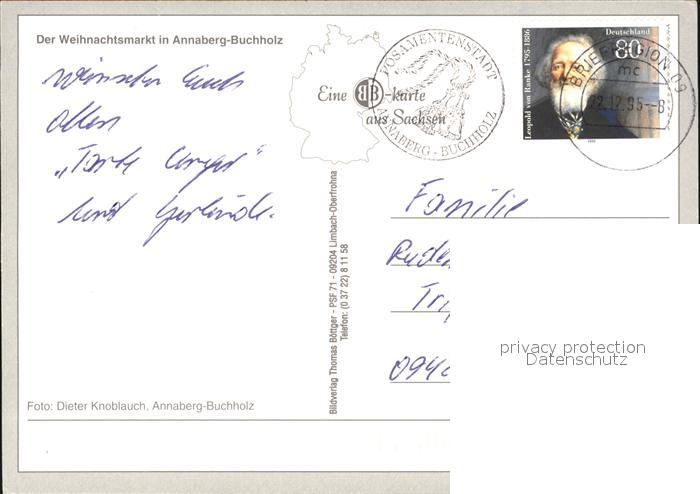 Der Weihnachtsmarkt in Annaberg-Buchholz
wünschen Euch
allen
"Tante
und Gerlinde.
Eine BB-karte
aus Sachsen
POSAMENTENSTADT
ANNABERG - BUCHHOLZ
Deutschland
80
Leopold von Ranke 1795-1886
BRIEFREGION 09
mc
22.12.95--8
Familie
09
Bildverlag Thomas Böttger - PSF 71 - 09204 Limbach-Oberfrohna
Telefon: (0 37 22) 8 11 58
privacy protection
Datenschutz
Foto: Dieter Knoblauch, Annaberg-Buchholz